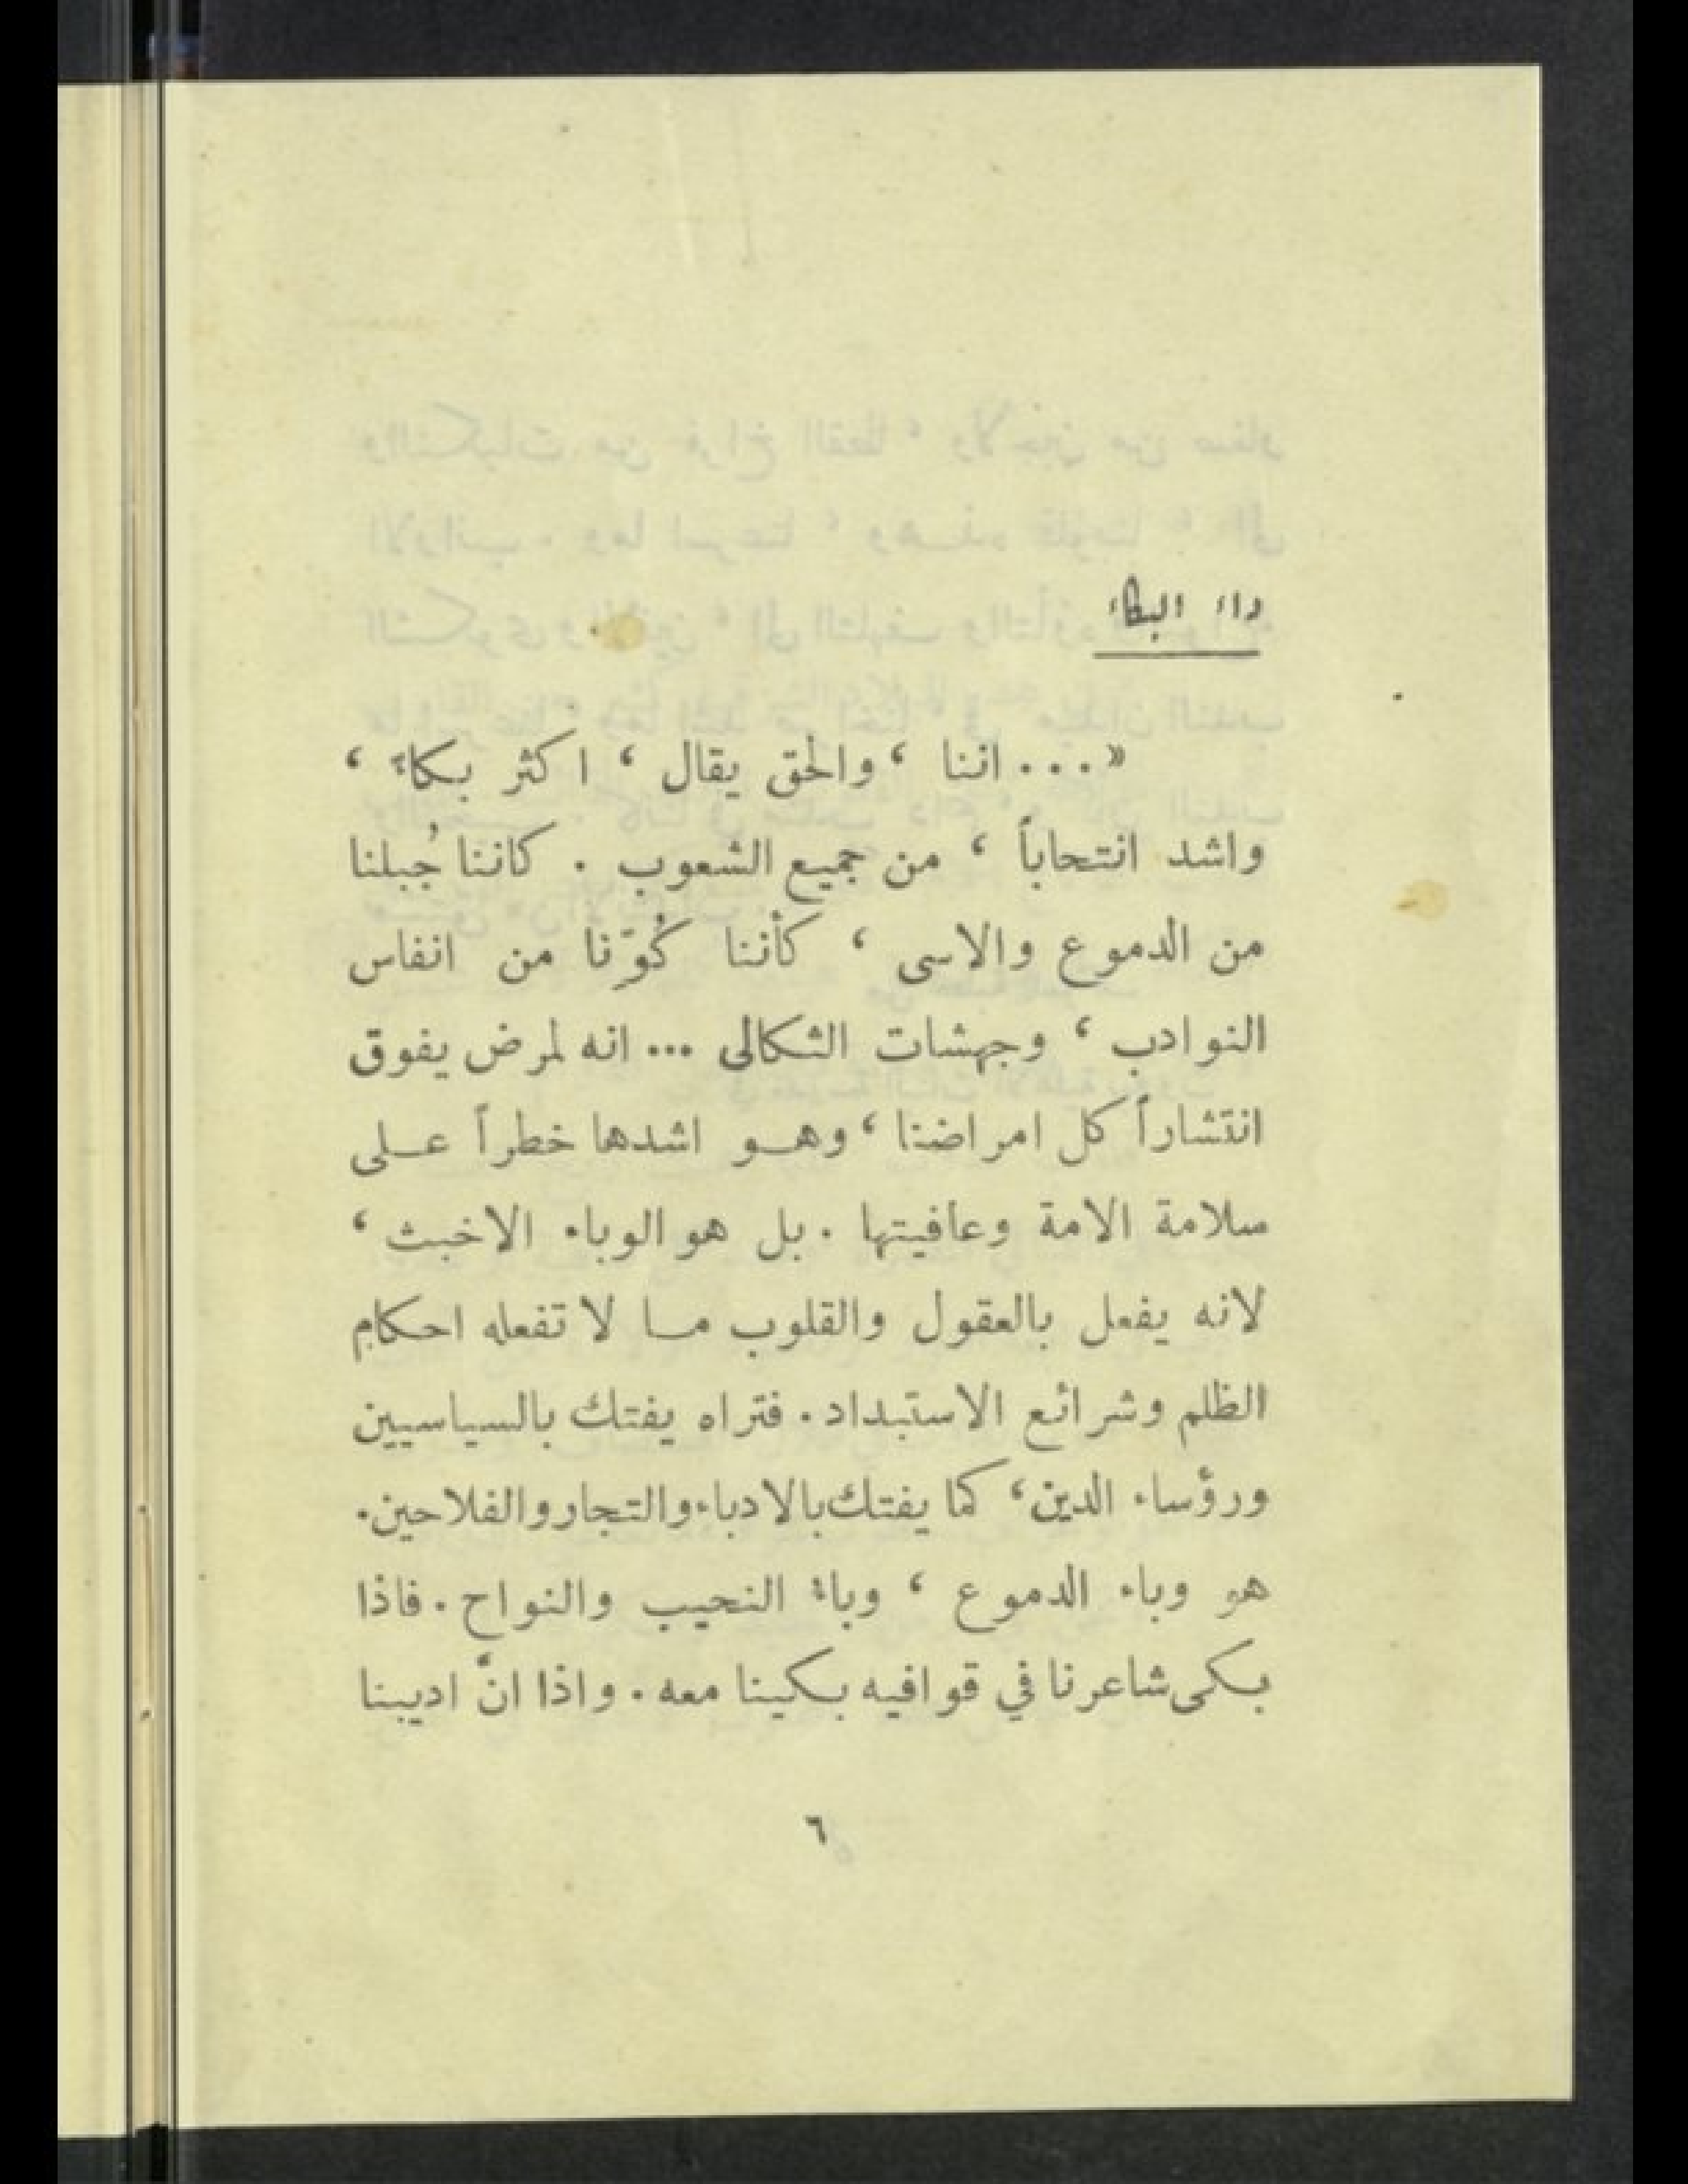 داء البكاء
«... اننا ، والحق يقال ، اكثر بكاءً ،
واشد انتحاباً ، من جميع الشعوب . كاننا جُبلنا
من الدموع والاسى ، كأننا كُوِّنا من انفاس
النوادب ، وجهشات الثكالى ... انه لمرض يفوق
انتشاراً كل امراضنا ، وهو اشدها خطراً على
سلامة الامة وعافيتها . بل هو الوباء الاخبث ،
لانه يفعل بالعقول والقلوب ما لا تفعله احكام
الظلم وشرائع الاستبداد . فتراه يفتك بالسياسيين
ورؤساء الدين ، كما يفتك بالادباء والتجار والفلاحين .
هو وباء الدموع ، وباءُ النحيب والنواح . فاذا
بكى شاعرنا في قوافيه بكينا معه . واذا انَّ اديبنا
٦